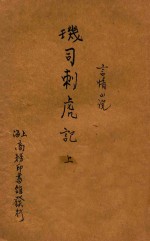 言情小說
璣司刺虎記 上
上海商務印書館發行